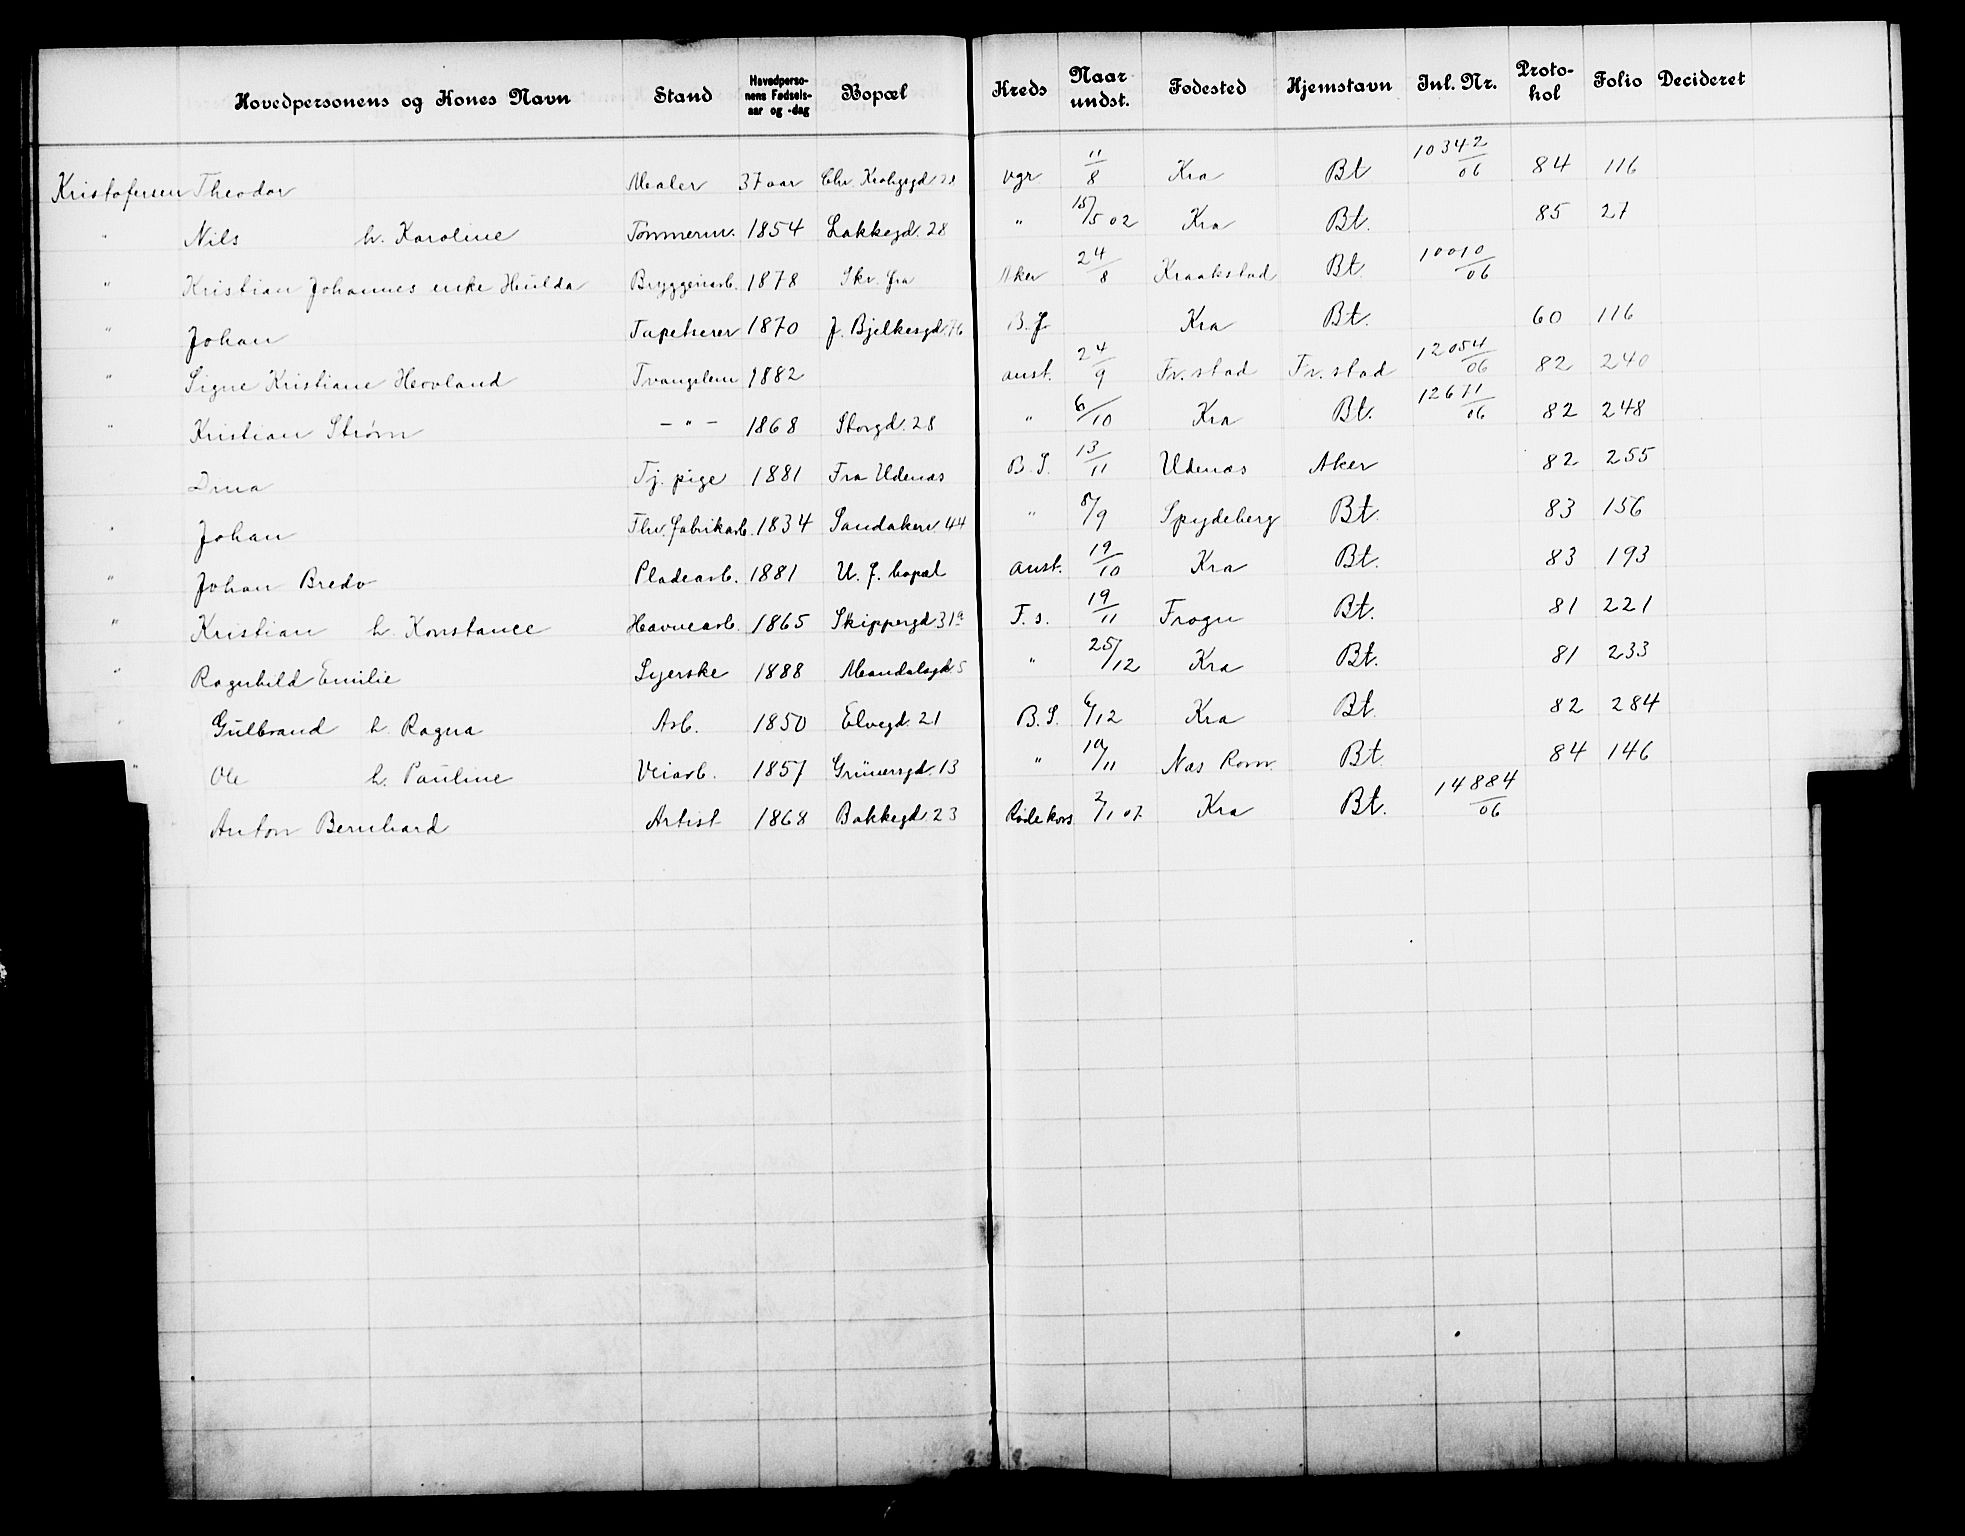 Hovedpersonens og Kones Navn Stand Hovedperso-nens Fødsels-aar og -dag Bopæl Kreds Naar undst. Fødested Hjemstavn Inl. Nr. Proto-kol Folio Decideret
Kristofersen Theodor Maler 37 aar Chr. Krohgsgd. 28 vgr 11/8 Kra Bt 10342/06 84 116
" Nils h. Karoline Tømmerm. 1854 Lakkegd. 28 " 15/5 02 Kra Bt. 85 27
" Kristian Johannes enke Hulda Bryggeriarb. 1878 Skr. fra Aker 24/8 Kraakstad Bt 10010/06
" Johan Tapetserer 1870 J. Bjelkesgd. 76 B. J. Kra Bt. 60 116
" Signe Kristiane Hovland Tvangslem 1882 anst. 24/9 Fr. stad Fr. stad 12054/06 82 240
" Kristian Strøm - " - 1868 Storgd. 28 " 6/10 Kra Bt. 12671/06 82 248
Dina Tj. pige 1881 Fra Udenæs B. S. 13/11 Udenæs Aker 82 255
" Johan Fhv. fabrikarb. 1834 Sandakerv. 44 " 8/9 Spydeberg Bt. 83 156
" Johan Bredo Pladearb. 1881 U. f. bopæl anst. 19/10 Kra Bt. 83 193
" Kristian h. Konstance Havnearb. 1865 Skippergd. 31a F. s. 19/11 Frogn Bt. 81 221
" Ragnhild Emilie Syerske 1888 Mandalsgd. 5 " 25/12 Kra Bt. 81 233
" Gulbrand h. Ragna Arb. 1850 Elvegd. 21 B. S. 6/12 Kra Bt. 82 284
" Ole h. Pauline Veiarb. 1857 Grünersgd. 13 " 10/11 Næs Rom. Bt. 84 146
Anton Bernhard Artist 1868 Bakkegd. 23 Rødekors 2/1 07. Kra Bt. 14884/06